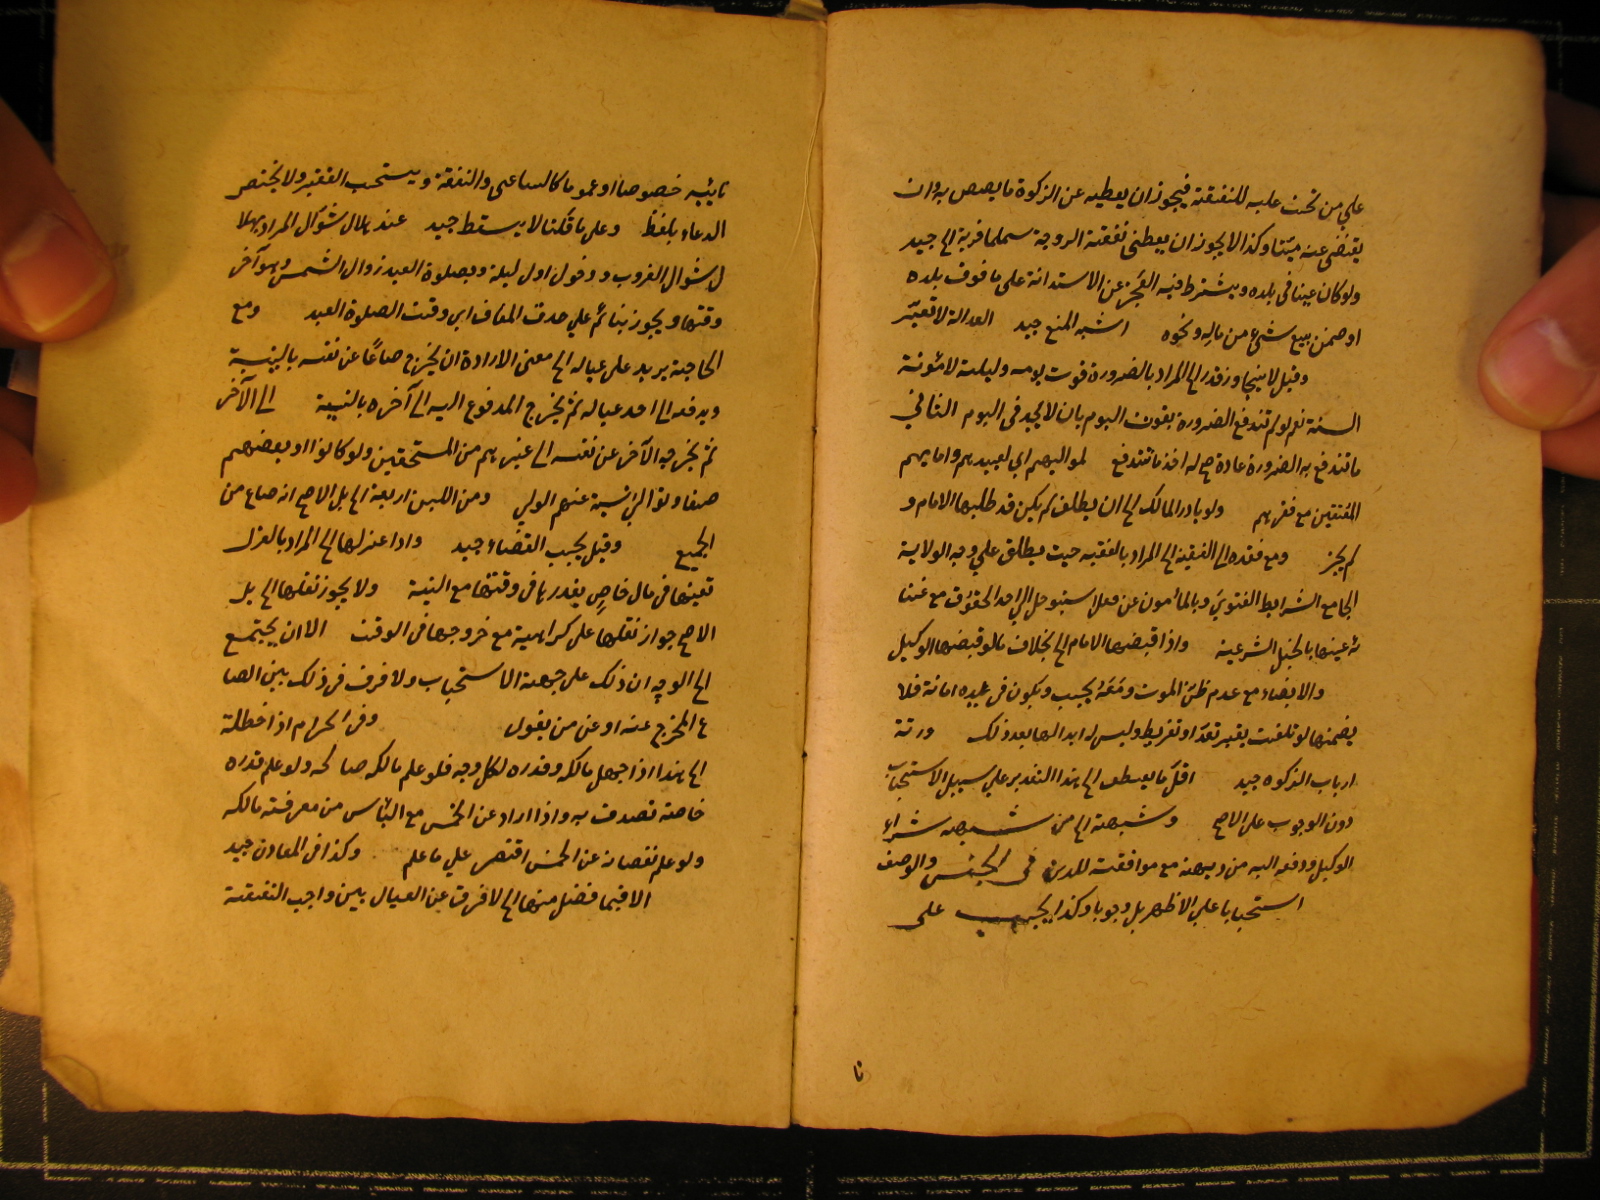 علي من تحت عليه للنفقة فيجوز ان يعطيه عن الزكوة ما يصص به وان
يقتضي عنه ميتا وكذا لا يجوز ان يعطي نفقة الزوجة سملما قربة الخ جيد
ولو كان عينا في بلده ويشترط فيه العجز عن الاستدانة على ما فوق بلده
او ضمن بيع شيء من ماله ونحوه اشبه المنع جيد العدالة لا تعتبر
وقيل لا يتجاوز قدر الخ المراد بالضرورة قوت يومه وليلته لا مئونة
السنة نعم لو لم تندفع الضرورة بقوت اليوم بان لا يجد في اليوم الثاني
ما تندفع به الضرورة عادة صح له اخذ ما تندفع لمواليهم اي لعبيدهم وامايهم
المعتقين مع فقرهم ولو بادر المالك الخ ان يطلق لم يكن قد طلبها الامام و
لم يجز ومع فقده الخ الفقيه الخ المراد بالفقيه حيث يطلق على وجه الولاية
الجامع الشرايط الفتوي وبالمأمون عن فعل
ئه عينها بالحيل الشرعية واذا قبضها الامام الخ بخلاف ما لو قبضها الوكيل
والايصاء مع عدم ظن الموت ومعه يجب ويكون في يده امانة فلا
يضمنها لو تلفت بغير تعد او تفريط وليس له ابدالها بعد ذلك ورثة
ارباب الزكوه جيد اقل ما يعطى الخ هذا التقدير على سبيل الاستحباب
دون الوجوب على الاصح وشبهة الخ من شبهه شراء
الوكيل ودفعه اليه من ديهنه مع موافقته للدين في الجنس والوصف
استحبابا على الاظهر بل وجوبا وكذا يجب على
نا
نايبه خصوصا او عموما كالساعي والنفقة ويستحب الفقير ولا يختص
الدعاء بلفظ وعلى ما قلنا لا يسقط جيد عند هلال شوال المراد بهلا
ل شوال الغروب ودخول اول ليلة وبصلوة العيد زوال الشمس وهو آخر
وقتها ويجوز بنائه علي حذف المضاف اي وقت الصلوة العيد ومع
الحاجة يدير على عياله الخ معنى الارادة ان يخرج صاعا عن نفسه بالنية
ويدفعه الى احد عياله ثم يخرج المدفوع اليه الى آخره بالنية الى الآخر
ثم يخرجه الآخر عن نفسه الى غيرهم من المستحقين ولو كانوا او بعضهم
صغارا تولى النية عنهم الولي ومن اللبن اربعة الخ بل الاصح انه صاع من
الجميع وقيل يجب القضاء جيد واذا عزلها الخ المراد بالعزل
تعينها في مال خاص بقدرها في وقتها مع النية ولا يجوز نقلها الخ بل
الاصح جواز نقلها على كراهية مع خروجها في الوقت الا ان يجتمع
الخ الوجه ان ذلك على جهة الاستحباب ولا فرق في ذلك بين الصا
ع المخرج عنه او عن من يعول وفي الحرام اذا اختلط
الخ هذا اذا جهل مالكه وقدره لكل وجه فلو علم مالكه صالحه ولو علم قدره
خاصة تصدق به واذا زاد عن الخمس مع اليأس من معرفة مالكه
ولو علم نقصانه عن الخمس اقتصر علي ما علم وكذا في المعادن جيد
الا فيما فضل منها الخ لا فرق عن العيال بين واجب النفقة